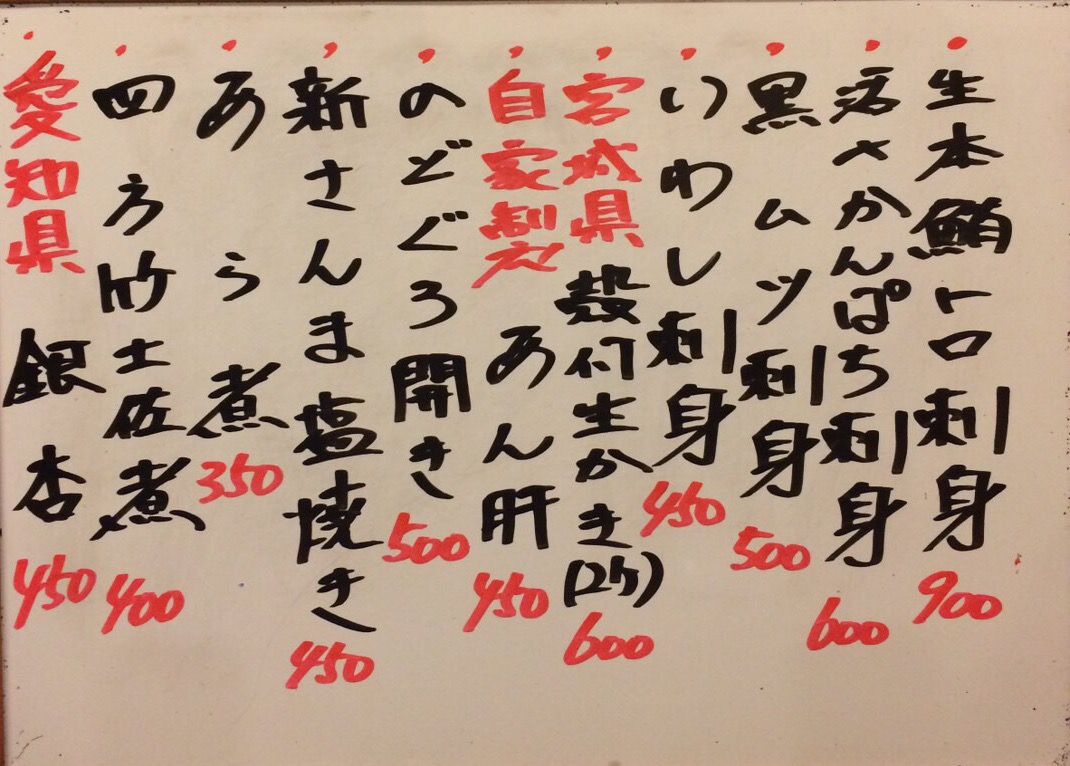 生本鮪トロ刺身 900
活〆かんぱち刺身 600
黒ムツ刺身 500
いわし刺身 450
宮城県 殻付生かき(2ケ) 600
自家製 あん肝 450
のどぐろ開き 500
新さんま塩焼き 450
あら煮 350
四方竹土佐煮 400
愛知県 銀杏 450